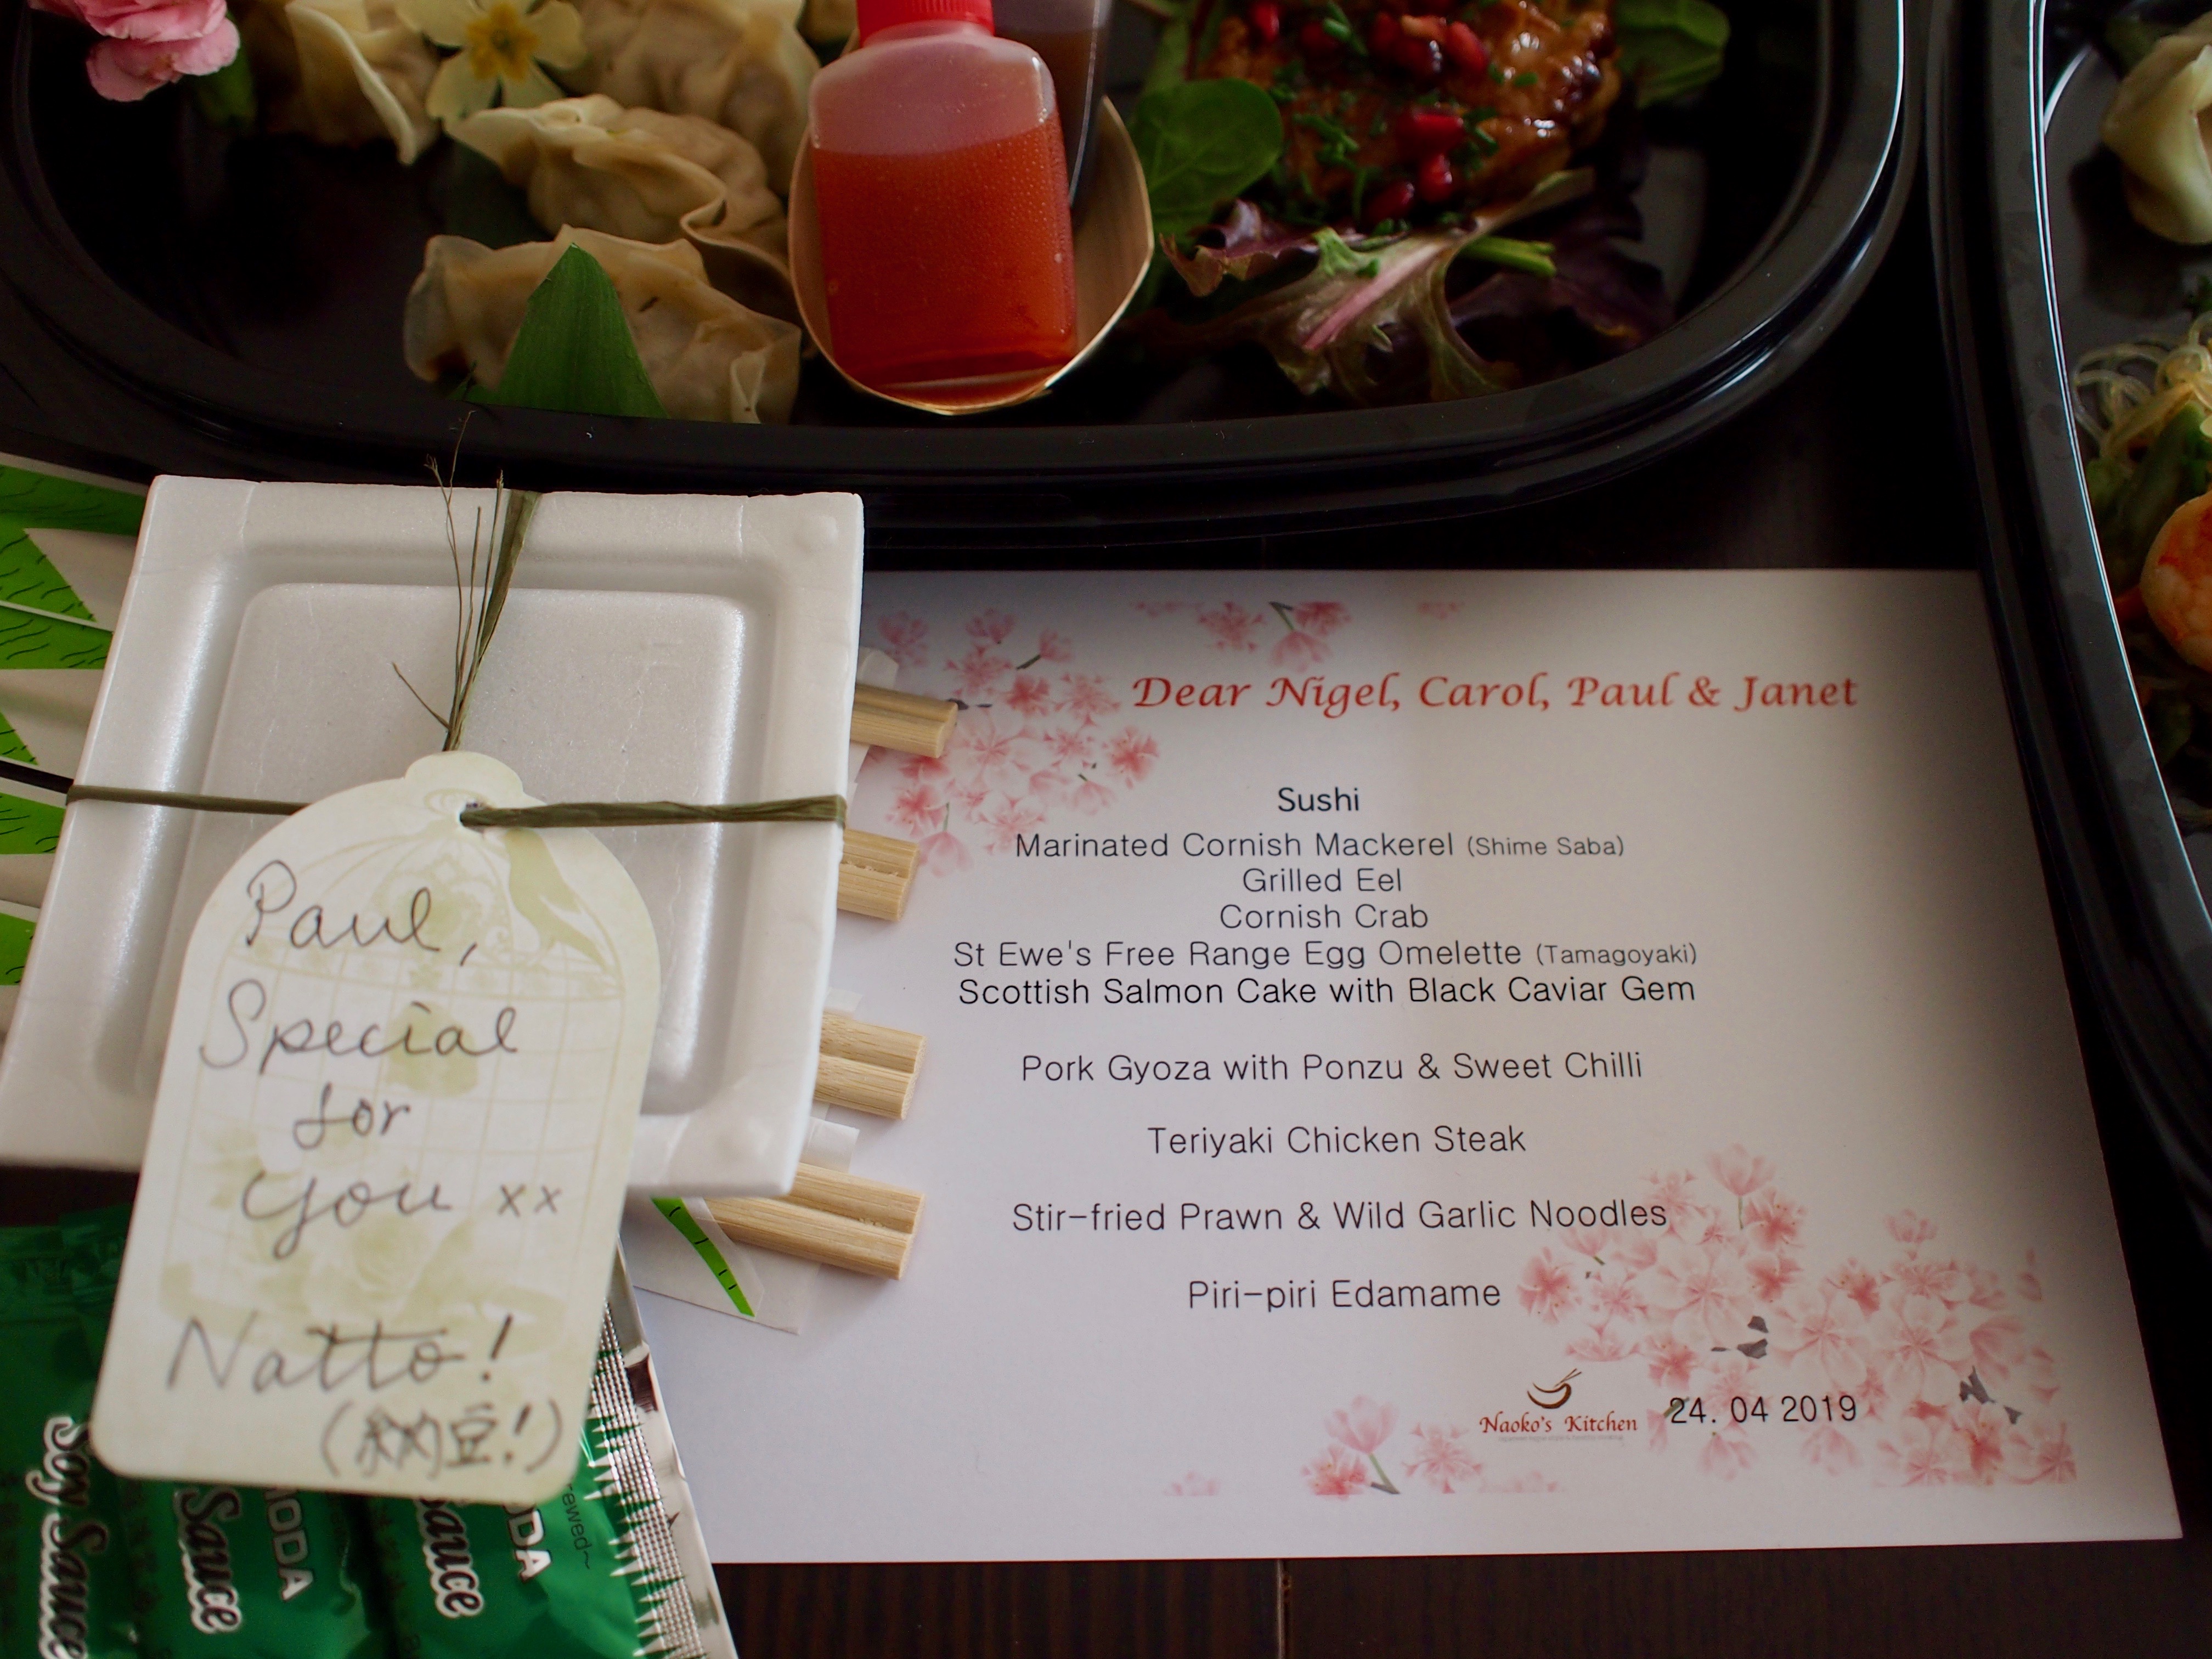 Dear Nigel, Carol, Paul & Janet
Sushi
Marinated Cornish Mackerel (Shime Saba)
Grilled Eel
Cornish Crab
St Ewe's Free Range Egg Omelette (Tamagoyaki)
Scottish Salmon Cake with Black Caviar Gem
Pork Gyoza with Ponzu & Sweet Chilli
Teriyaki Chicken Steak
Stir-fried Prawn & Wild Garlic Noodles
Piri-piri Edamame
Naoko's Kitchen
24. 04 2019
Paul,
Special
for
you xx
Natto!
(納豆!)
Soy Sauce
Sauce
Sauce